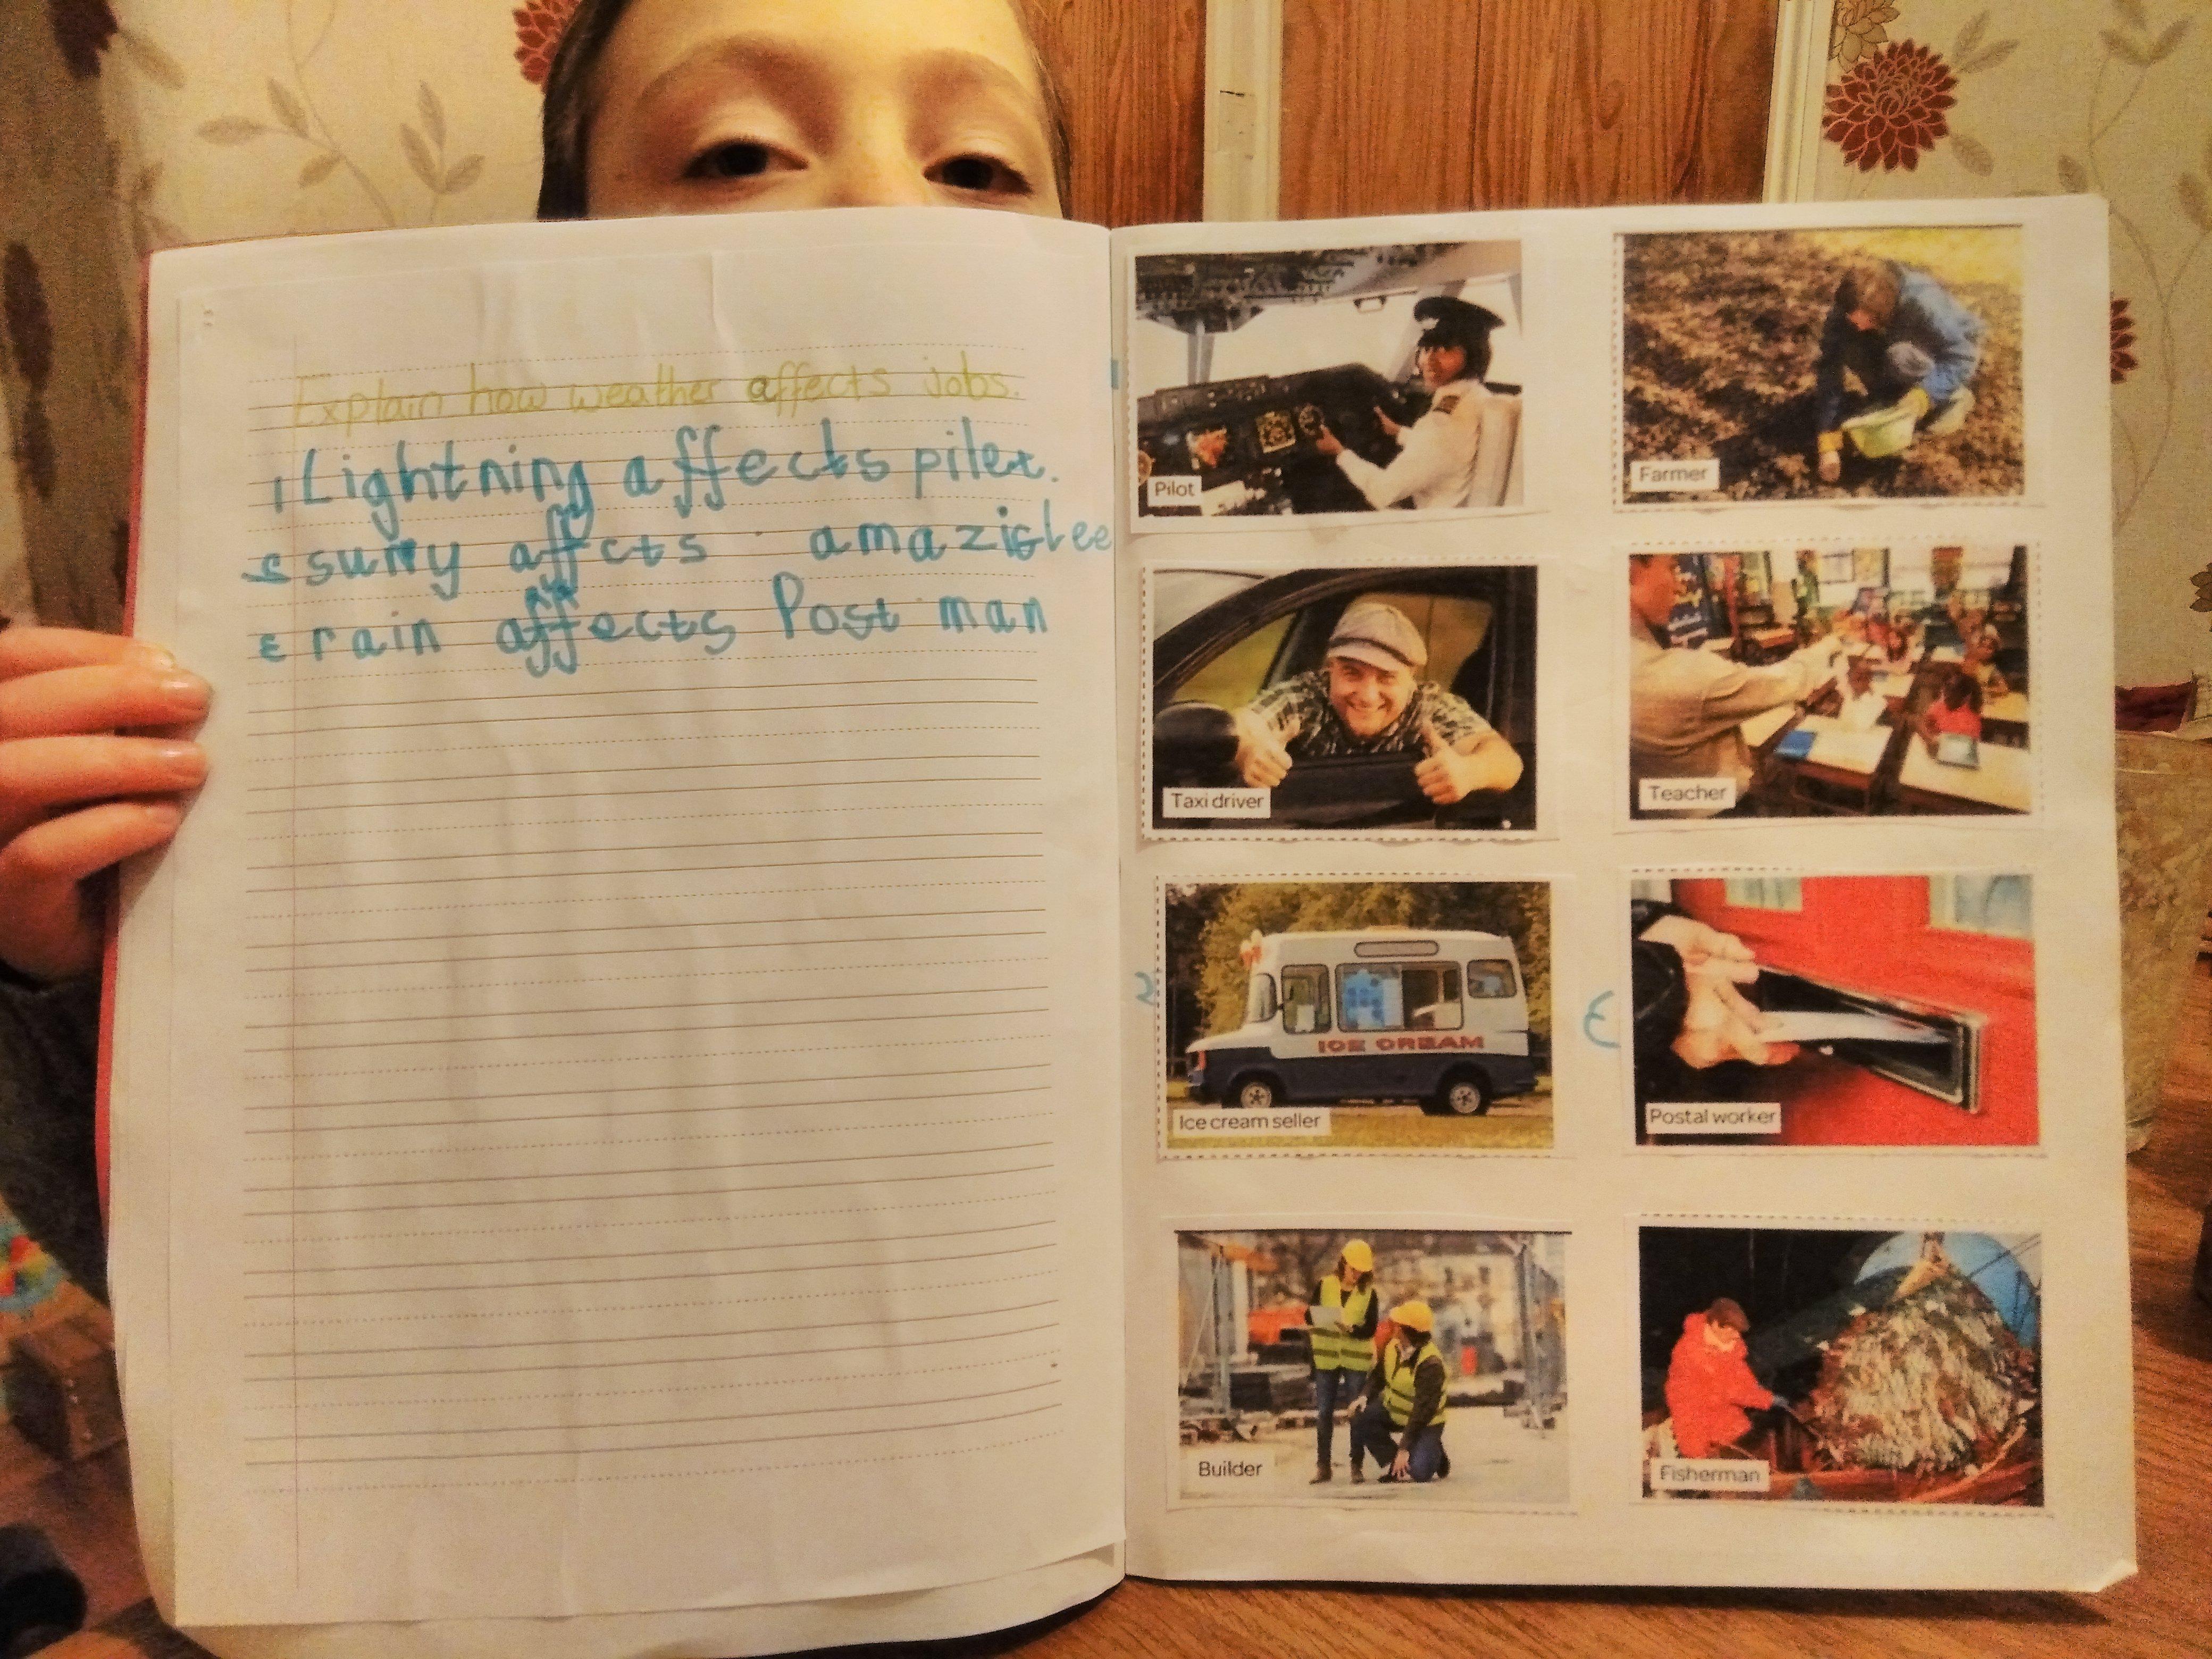 Explain how weather affects jobs.
1 Lightning affects pilet.
2 sunny affcts amazistee
3 rain affects Post man
Pilot
Farmer
Taxi driver
Teacher
ICE CREAM
Ice cream seller
2
3
Postal worker
Builder
Fisherman